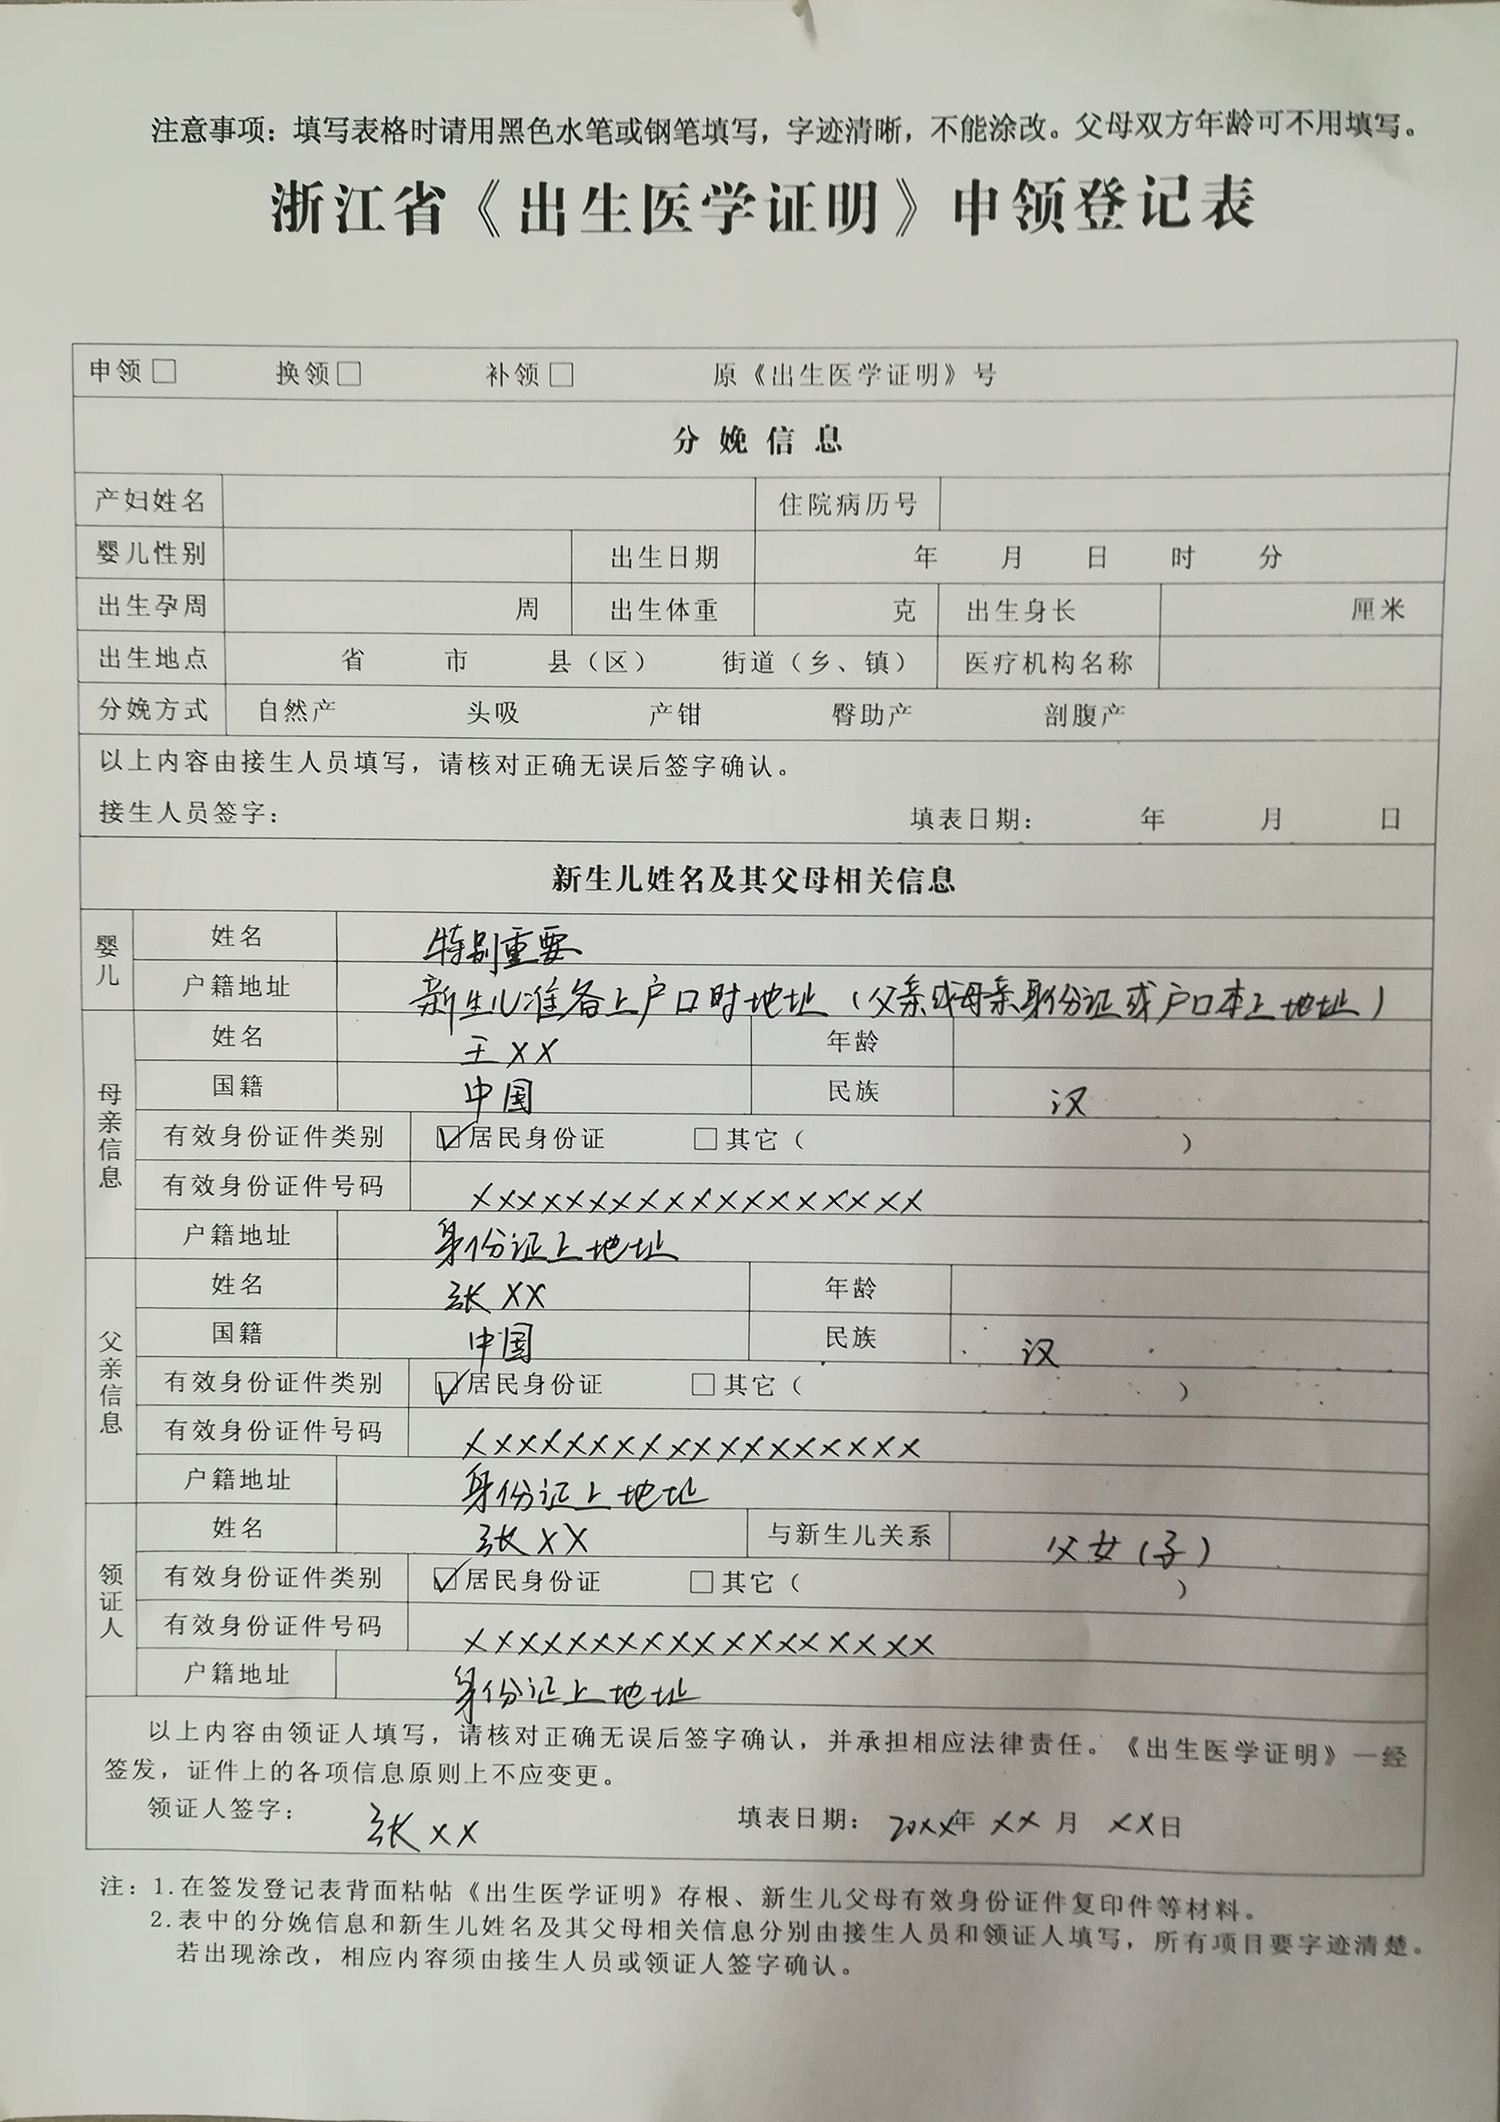 注意事项：填写表格时请用黑色水笔或钢笔填写，字迹清晰，不能涂改。父母双方年龄可不用填写。
浙江省《出生医学证明》申领登记表
申领□ 换领□ 补领□ 原《出生医学证明》号
分娩信息
产妇姓名 住院病历号
婴儿性别 出生日期 年 月 日 时 分
出生孕周 周 出生体重 克 出生身长 厘米
出生地点 省 市 县（区） 街道（乡、镇） 医疗机构名称
分娩方式 自然产 头吸 产钳 臀助产 剖腹产
以上内容由接生人员填写，请核对正确无误后签字确认。
接生人员签字： 填表日期： 年 月 日
新生儿姓名及其父母相关信息
婴儿
姓名 特别重要
户籍地址 新生儿准备上户口时地址（父亲或母亲身份证或户口本上地址）
母亲信息
姓名 王XX 年龄
国籍 中国 民族 汉
有效身份证件类别 ☑居民身份证 □其它（ ）
有效身份证件号码 XXXXXXXXXXXXXXXXXX
户籍地址 身份证上地址
父亲信息
姓名 张XX 年龄
国籍 中国 民族 汉
有效身份证件类别 ☑居民身份证 □其它（ ）
有效身份证件号码 XXXXXXXXXXXXXXXXXX
户籍地址 身份证上地址
领证人
姓名 张XX 与新生儿关系 父女（子）
有效身份证件类别 ☑居民身份证 □其它（ ）
有效身份证件号码 XXXXXXXXXXXXXXXXXX
户籍地址 身份证上地址
以上内容由领证人填写，请核对正确无误后签字确认，并承担相应法律责任。《出生医学证明》一经
签发，证件上的各项信息原则上不应变更。
领证人签字： 张XX 填表日期： 20XX年 XX月 XX日
注：1.在签发登记表背面粘帖《出生医学证明》存根、新生儿父母有效身份证件复印件等材料。
2.表中的分娩信息和新生儿姓名及其父母相关信息分别由接生人员和领证人填写，所有项目要字迹清楚。
若出现涂改，相应内容须由接生人员或领证人签字确认。